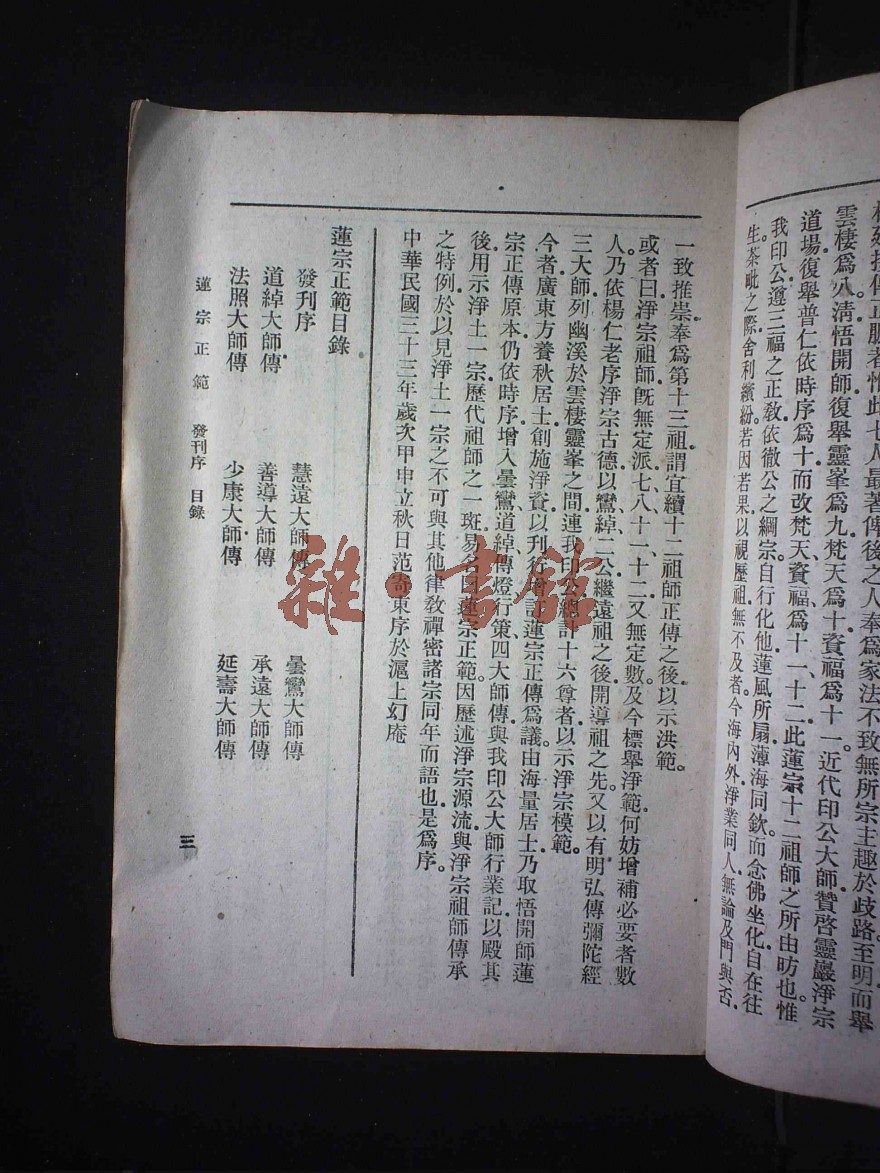 雲棲爲八。清悟開師復舉靈峯爲九梵天爲十資福爲十一。近代印公大師贊啓靈巖淨宗
道場復舉普仁依時序爲十而改梵天資福爲十一、十二此蓮宗十二祖師之所由昉也。惟
我印公遵三福之正敎依徹公之綱宗自行化他蓮風所扇薄海同欽而念佛坐化自在往
生。荼毗之際舍利繽紛若因若果以視歷祖無不及者。今海內外淨業同人無論及門與否
一致推崇奉爲第十三祖謂宜續十二祖師正傳之後以示洪範。
或者曰淨宗祖師旣無定派七八十一、十二又無定數及今標舉淨範何妨增補必要者數
人乃依楊仁老序淨宗古德以鸞綽二公繼遠祖之後開導祖之先。又以有明弘傳彌陀經
三大師列幽溪於雲棲靈峯之間連我印公總計十六尊者以示淨宗模範。
今者廣東方養秋居士創施淨資以刊行增訂蓮宗正傳爲議由海量居士乃取悟開師蓮
宗正傳原本仍依時序增入曇鸞道綽傳燈行策四大師傳與我印公大師行業記以殿其
後用示淨土一宗歷代祖師之一斑易名曰蓮宗正範因歷述淨宗源流與淨宗祖師傳承
之特例於以見淨土一宗之不可與其他律敎禪密諸宗同年而語也是爲序。
中華民國三十三年歲次甲申立秋日范寄東序於滬上幻庵
蓮宗正範目錄
發刊序 慧遠大師傳 曇鸞大師傳
道綽大師傳 善導大師傳 承遠大師傳
法照大師傳 少康大師傳 延壽大師傳
蓮宗正範 發刊序 目錄 三
雜·書館